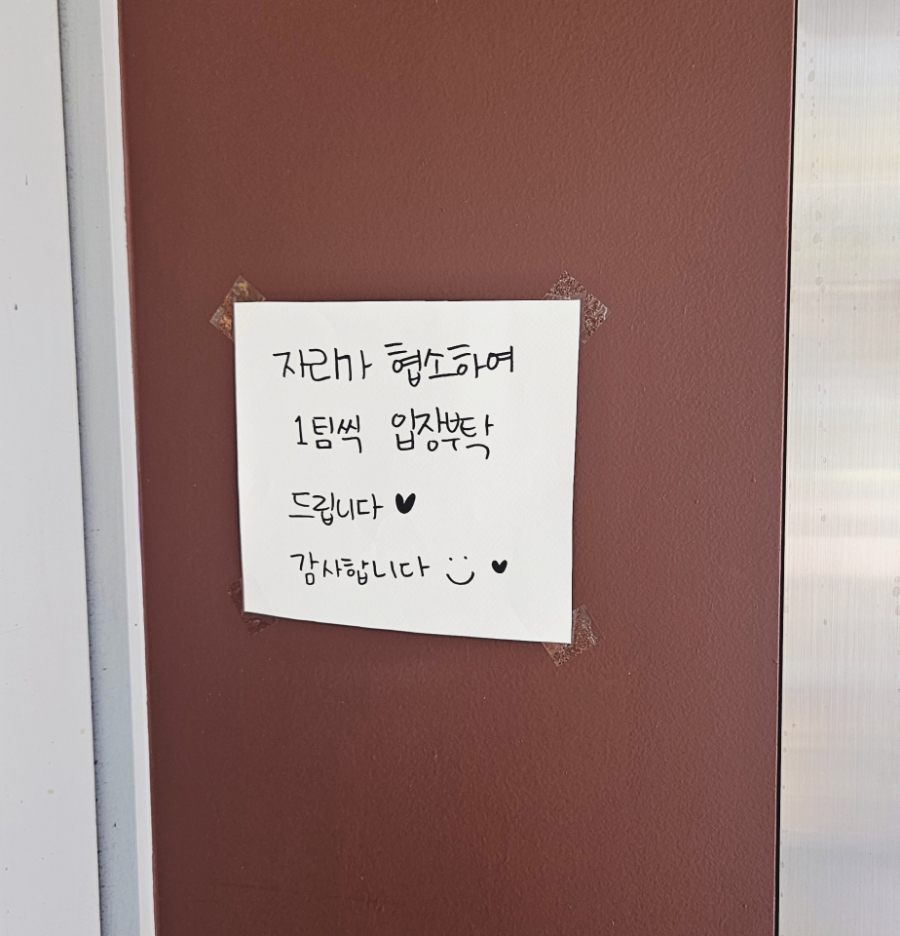 자리가 협소하여
1팀씩 입장부탁
드립니다 ♥
감사합니다 :) ♥